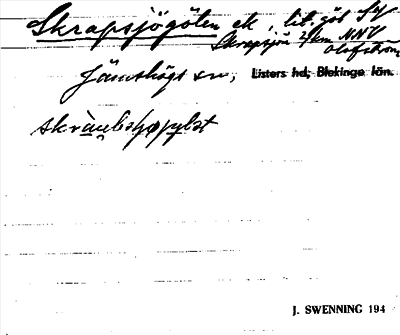 Skrapsjögölen ek, lit. göl SV
Skrapsjön 2 km NNV
Olofström
Jämshögs sn, Listers hd, Blekinge län.
J. SWENNING 194